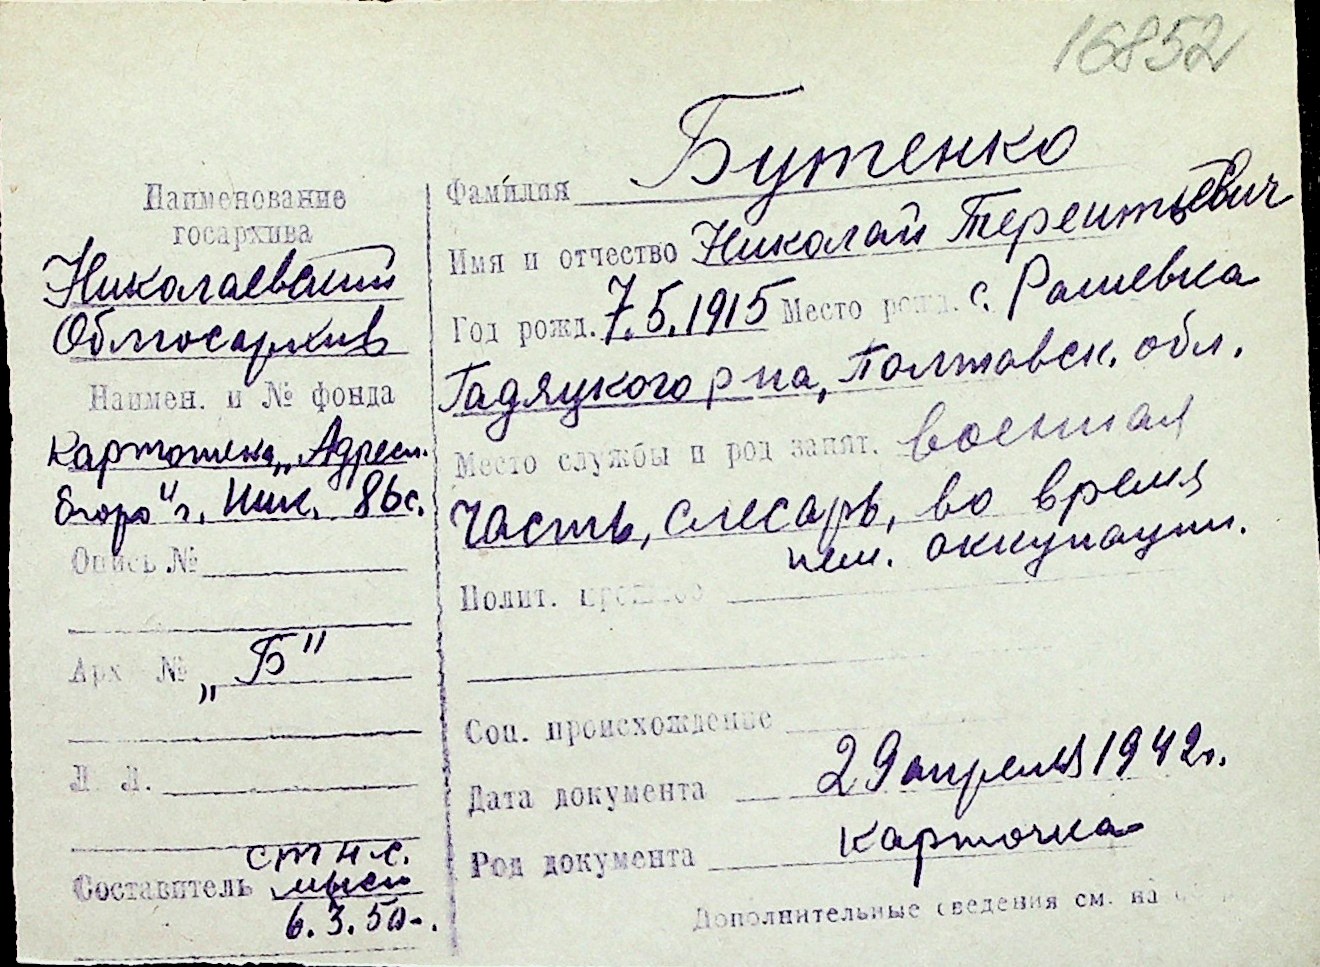 16852
Наименование
госархива
Николаевский
Облгосархив
Наимен. и № фонда
Картотека „Адресн.
бюро" г. Ник. 86с.
Опись №
Арх №
„Б"
Л. Л.
ст н.с.
Составитель
6.3.50.
Фамилия Бутенко
Имя и отчество Николай Терентьевич
Год рожд. 7.5.1915 Место рожд. с. Рашевка
Гадяцкого р-на, Полтавск. обл.
Место службы и род занят. военная
часть, слесарь, во время
нем. оккупации.
Полит. прошлое
Соц. происхождение
Дата документа 29 апреля 1942г.
Род документа карточка
Дополнительные сведения см. на